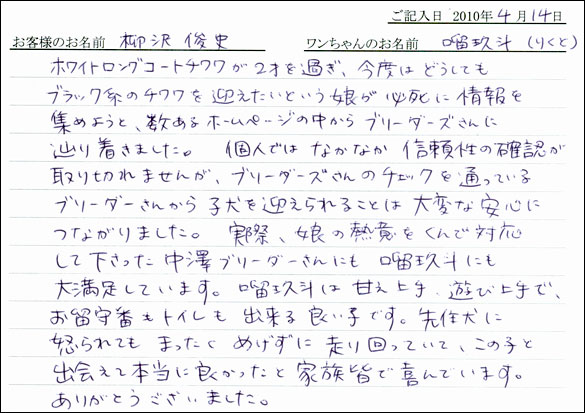 ご記入日 2010年4月14日
お客様のお名前 柳沢 俊史 ワンちゃんのお名前 瑠玖斗(りくと)
ホワイトロングコートチワワが2才を過ぎ、今度はどうしても
ブラック系のチワワを迎えたいという娘が必死に情報を
集めようと、数あるホームページの中からブリーダーズさんに
辿り着きました。 個人ではなかなか信頼性の確認が
取り切れませんが、ブリーダーズさんのチェックを通っている
ブリーダーさんから子犬を迎えられることは大変な安心に
つながりました。 実際、娘の熱意をくんで対応
して下さった中澤ブリーダーさんにも 瑠玖斗にも
大満足しています。瑠玖斗は甘え上手、遊び上手で、
お留守番もトイレも出来る良い子です。先住犬に
怒られてもまったくめげずに走り回っていて、この子と
出会えて本当に良かったと家族皆で喜んでいます。
ありがとうございました。